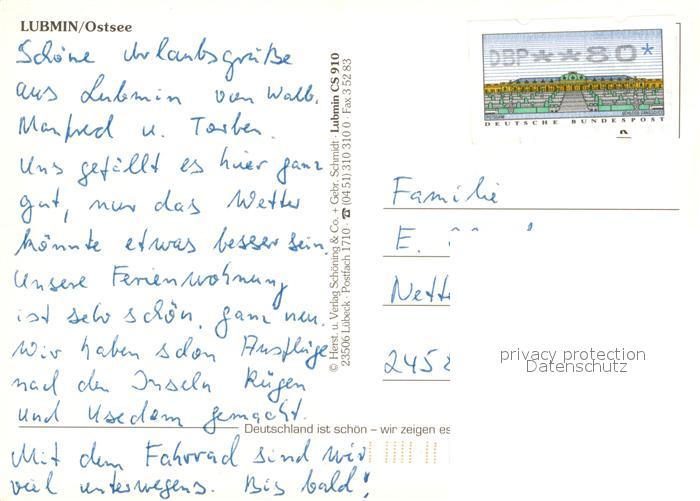 LUBMIN/Ostsee
Schöne Urlaubsgrüße
aus Lubmin von
Manfred u. Torben.
Uns gefällt es hier ganz
gut, nur das Wetter
könnte etwas besser sein.
Unsere Ferienwohnung
ist sehr schön, ganz neu.
Wir haben schon Ausflüge
nach den Inseln Rügen
und Usedom gemacht.
Mit dem Fahrrad sind wir
viel unterwegens. Bis bald!
© Herst. u. Verlag Schöning & Co. + Gebr. Schmidt · Lubmin CS 910
23506 Lübeck · Postfach 1710 · ☎ (04 51) 310 310 0 · Fax 3 52 83
Deutschland ist schön – wir zeigen es
DBP**80*
DEUTSCHE BUNDESPOST
Familie
E.
Nett
245
privacy protection
Datenschutz